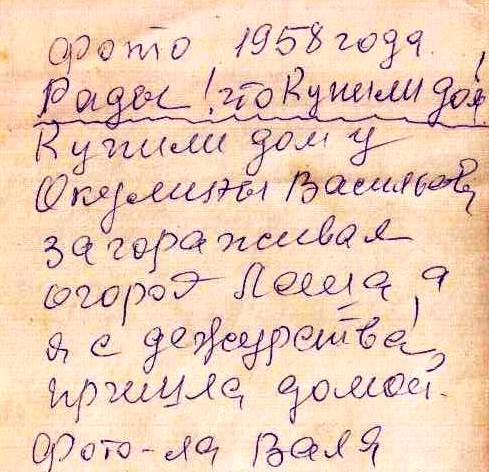 Фото 1958 года.
Рады! что Купили дом!
Купили дом у
Окулины Васильевны
загораживая
огород Паша, а
я с дежурства,
пришла домой.
Фото-ла Валя